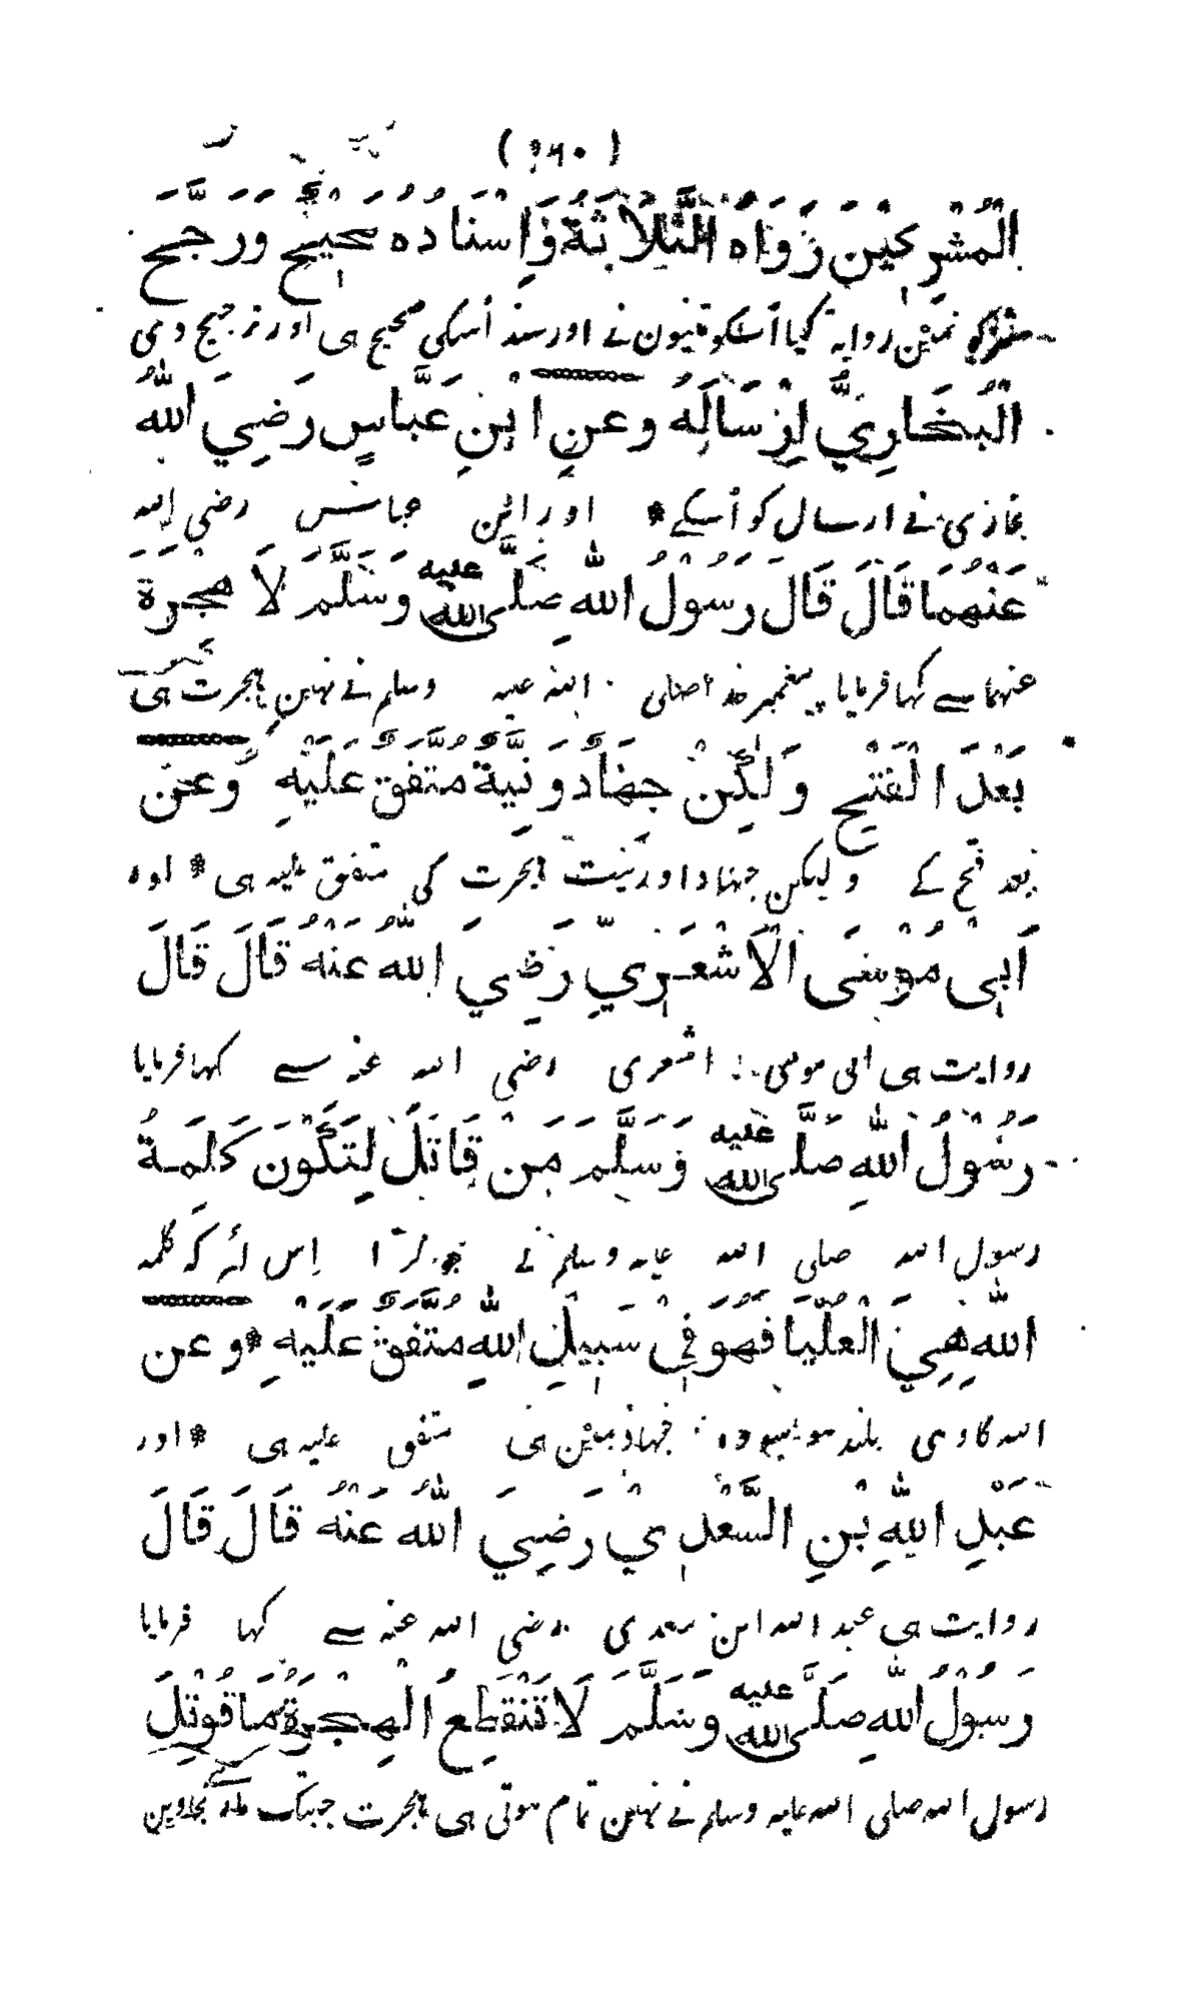 الْمُشْرِكِيْنَ رَوَاهُ الثَّلَاثَةُ وَاِسْنَادُهُ صَحِيْحٌ وَرَجَّحَ
مشرکو نمین روایة کیا اسکو تینون نے اور سند اُسکی صحیح ہی اور ترجیح دی
الْبُخَارِيُّ اِرْسَالَهُ وعنِ ابْنِ عَبَّاسٍ رَضِيَ اللّٰهُ
نے ارسال کو اُسکے * اور ابن عباس رضي الله
عَنْهُمَا قَالَ قَالَ رَسُوْلُ اللّٰهِ صَلَّى اللّٰهُ عليه وَسَلَّمَ لَا هِجْرَةَ
عنہما سے کہا فرمایا پیغمبر خدا صلی الله علیه وسلم نے نہین ہجرت ہی
بَعْدَ الْفَتْحِ وَلٰكِنْ جِهَادٌ وَنِيَّةٌ مُتَّفَقٌ عَلَيْهِ وَعَنْ
بعد فتح کے ولیکن جہاد اور نیت ہجرت کی متفق علیه ہی * اور
اَبِىْ مُوْسَى الْاَشْعَرِيِّ رَضِيَ اللّٰهُ عَنْهُ قَالَ قَالَ
روایت ہی ابی موسی اشعری رضي الله عنه سے کہا فرمایا
رَسُوْلُ اللّٰهِ صَلَّى اللّٰهُ عليه وَسَلَّمَ مَنْ قَاتَلَ لِتَكُوْنَ كَلِمَةُ
رسول الله صلی الله علیه وسلم نے جو لڑا اِس لئے کہ کلمه
اللّٰهِ هِيَ الْعُلْيَا فَهُوَ فِىْ سَبِيْلِ اللّٰهِ مُتَّفَقٌ عَلَيْهِ * وعن
الله کا وہی بلند ہو سو وه جہاد مین ہی متفق علیه ہی * اور
عَبْدِ اللّٰهِ بْنِ السَّعْدِيِ رَضِيَ اللّٰهُ عَنْهُ قَالَ قَالَ
روایت ہی عبد الله ابن سعدی رضي الله عنه سے کہا فرمایا
رَسُوْلُ اللّٰهِ صَلَّى اللّٰهُ عليه وَسَلَّمَ لَا تَنْقَطِعُ الْهِجْرَةُ مَا قُوْتِلَ
رسول الله صلی الله علیه وسلم نے نہین تمام ہوتی ہی ہجرت جبتک